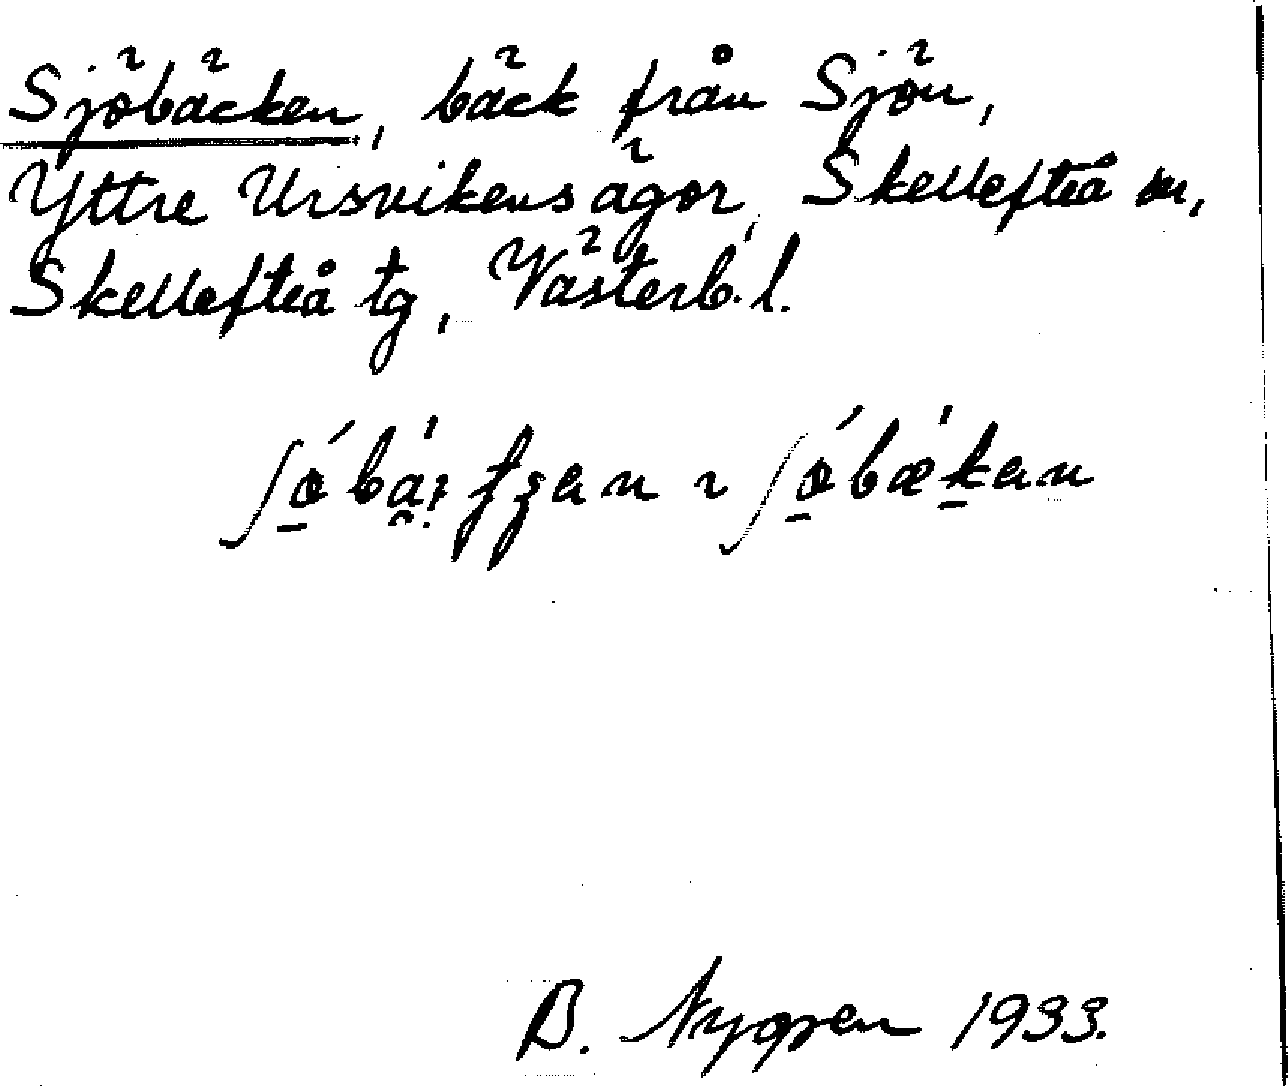 Sjöbäcken, bäck från Sjön,
Yttre Ursvikens ägor, Skellefteå sn,
Skellefteå tg, Västerb. l.
B. Nygren 1933.